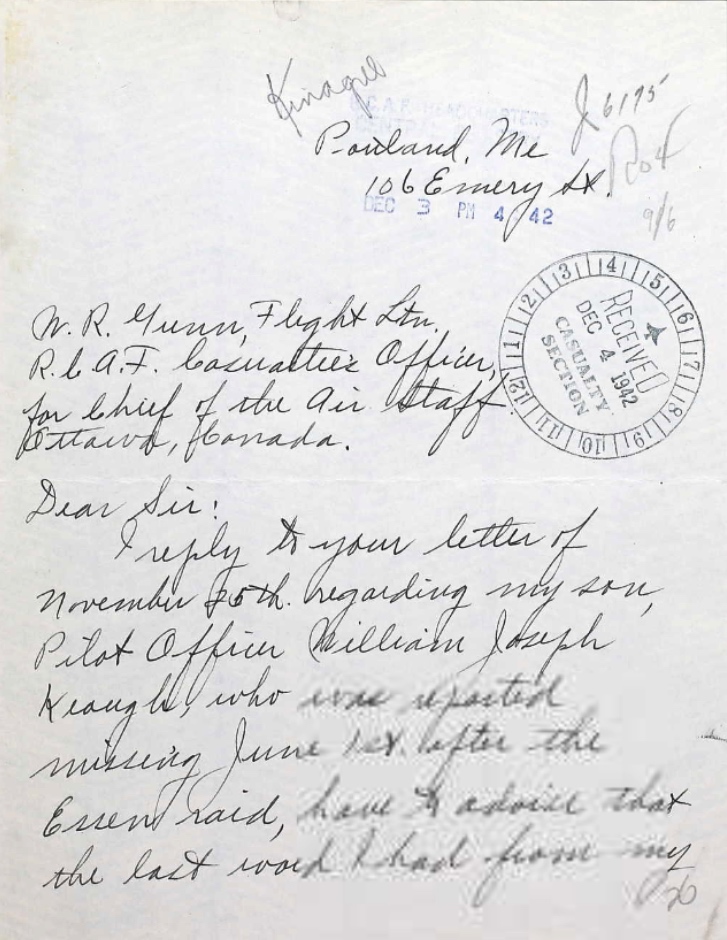 J 6195
R.C.A.F. HEADQUARTERS
CENTRAL
Portland, Me
106 Emery St.
DEC 3 PM 4 42
9/6
W. R. Gunn, Flight Ltn.
R.C.A.F. Casualties Officer,
for Chief of the Air Staff
Ottawa, Canada.
1 2 3 4 5 6 7 8 9 10 11 12
RECEIVED
DEC 4 1942
CASUALTY
SECTION
Dear Sir:
I reply to your letter of
November 25th. regarding my son,
Pilot Officer William Joseph
Keough, who was reported
missing June 1st. after the
Essen raid, have to advise that
the last word I had from my